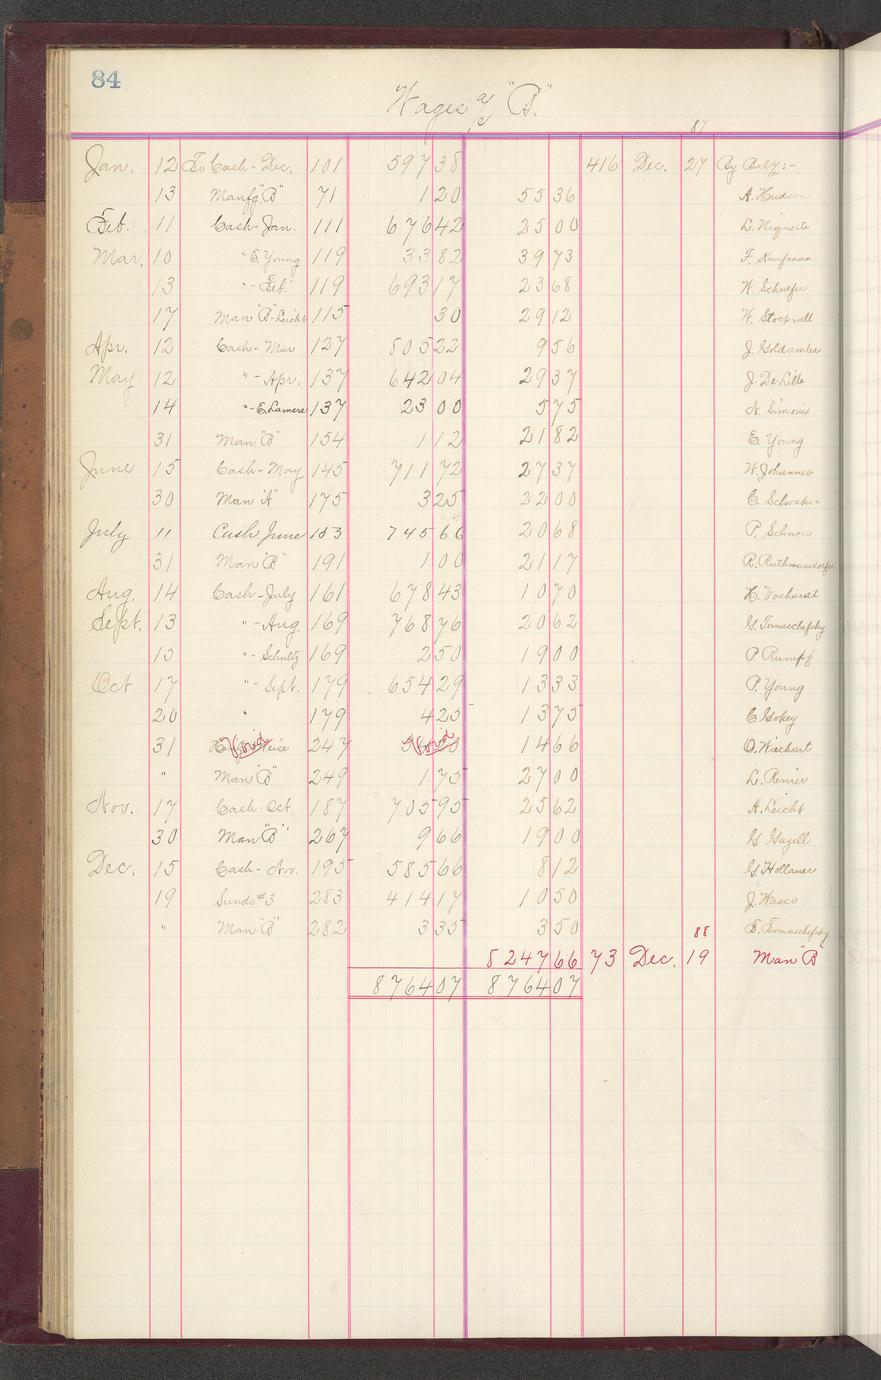 84
Wages a/c "B."
87
Jan. 12 To Cash - Dec. 101 597 38 416 Dec. 27 By Bal's:-
13 Manfg "B" 71 1 20 55 36 A. Hudson
Feb. 11 Cash - Jan. 111 676 42 25 00 L. Niquette
Mar. 10 " E. Young 119 33 82 39 73 F. Kaufman
13 " - Feb. 119 693 17 23 68 W. Schaefer
17 Man "B" - Leicht 115 30 29 12 W. Stockwell
Apr. 12 Cash - Mar 127 805 22 9 56 J. Goldamler
May 12 " - Apr. 137 642 04 29 37 J. DeLille
14 " - E. Lamere 137 23 00 5 75 N. Simonis
31 Man "B" 154 1 12 21 82 E. Young
June 15 Cash - May 145 711 72 27 37 W. Johannes
30 Man "A" 175 3 25 22 00 C.
July 11 Cash June 153 745 66 20 68 P.
31 Man "B" 191 1 00 21 17 R. Ruthmansdorfer
Aug. 14 Cash - July 161 678 43 10 70 H.
Sept. 13 " - Aug. 169 768 76 20 62 G. Tomacchefsky
15 " - Schultz 169 2 50 19 00 P. Rumpf
Oct 17 " - Sept. 179 654 29 13 33 P. Young
20 " 179 4 25 13 75 C. Gokey
31 Void 247 Void 14 66 O. Wiechart
" Man "B" 249 1 75 27 00 L. Renier
Nov. 17 Cash - Oct. 187 705 95 25 62 A. Leicht
30 Man "B" 267 9 66 19 00 G. Gagell
Dec. 15 Cash - Nov. 195 585 66 8 12 G. Hollauer
19 Sunds #3 283 414 17 10 50 J. Wasco
" Man "B" 282 3 35 3 50 B. Tomacchefsky
88
8247 66 73 Dec. 19 Man "B"
8764 07 8764 07